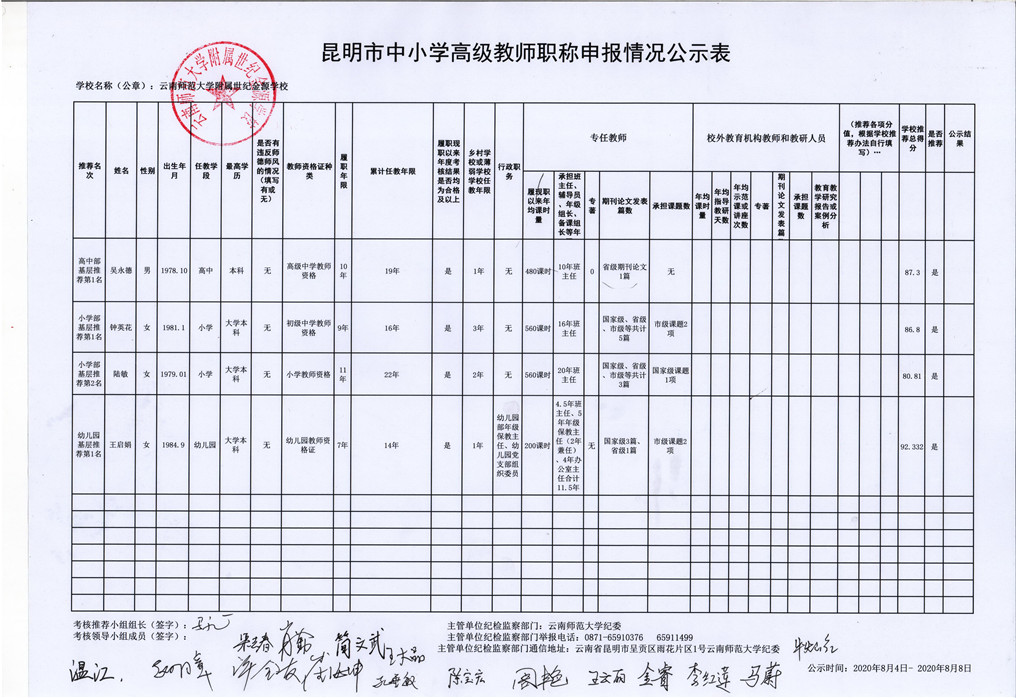 昆明市中小学高级教师职称申报情况公示表
云南师范大学附属世纪金源学校
学校名称（公章）：云南师范大学附属世纪金源学校
推荐名次 姓名 性别 出生年月 任教学段 最高学历 是否有违反师德师风的情况（填写有或无） 教师资格证种类 履职年限 累计任教年限 履职现职以来年度考核结果是否均为合格及以上 乡村学校或薄弱学校学校任教年限 行政职务 专任教师 校外教育机构教师和教研人员 （推荐各项分值，根据学校推荐办法自行填写）… 学校推荐总得分 是否推荐 公示结果
履现职以来年均课时量 承担班主任、辅导员、年级组长、备课组长等年 专著 期刊论文发表篇数 承担课题数 年均课时量 年均指导教研天数 年均示范课或讲座次数 专著 期刊论文发表篇 承担课题数 教育教学研究报告或案例分析
高中部基层推荐第1名 吴永德 男 1978.10 高中 本科 无 高级中学教师资格 10年 19年 是 1年 无 480课时 10年班主任 0 省级期刊论文1篇 无 87.3 是
小学部基层推荐第1名 钟英花 女 1981.1 小学 大学本科 无 初级中学教师资格 9年 16年 是 3年 无 560课时 16年班主任 国家级、省级、市级等共计5篇 市级课题2项 86.8 是
小学部基层推荐第2名 陆敏 女 1979.01 小学 大学本科 无 小学教师资格 11年 22年 是 2年 无 560课时 20年班主任 国家级、省级、市级等共计3篇 国家级课题1项 80.81 是
幼儿园基层推荐第1名 王启娟 女 1984.9 幼儿园 大学本科 无 幼儿园教师资格证 7年 14年 是 1年 幼儿园部年级保教主任、幼儿园党支部组织委员 200课时 4.5年班主任、5年年级保教主任（2年兼任）、4年办公室主任合计11.5年 无 国家级3篇、省级1篇 市级课题2项 92.332 是
考核推荐小组组长（签字）：
考核领导小组成员（签字）：
主管单位纪检监察部门：云南师范大学纪委
主管单位纪检监察部门举报电话：0871-65910376 65911499
主管单位纪检监察部门通信地址：云南省昆明市呈贡区雨花片区1号云南师范大学纪委
简文武
温江 陈宝宏 王文丽 金睿 李红莲 马蔚
公示时间：2020年8月4日- 2020年8月8日